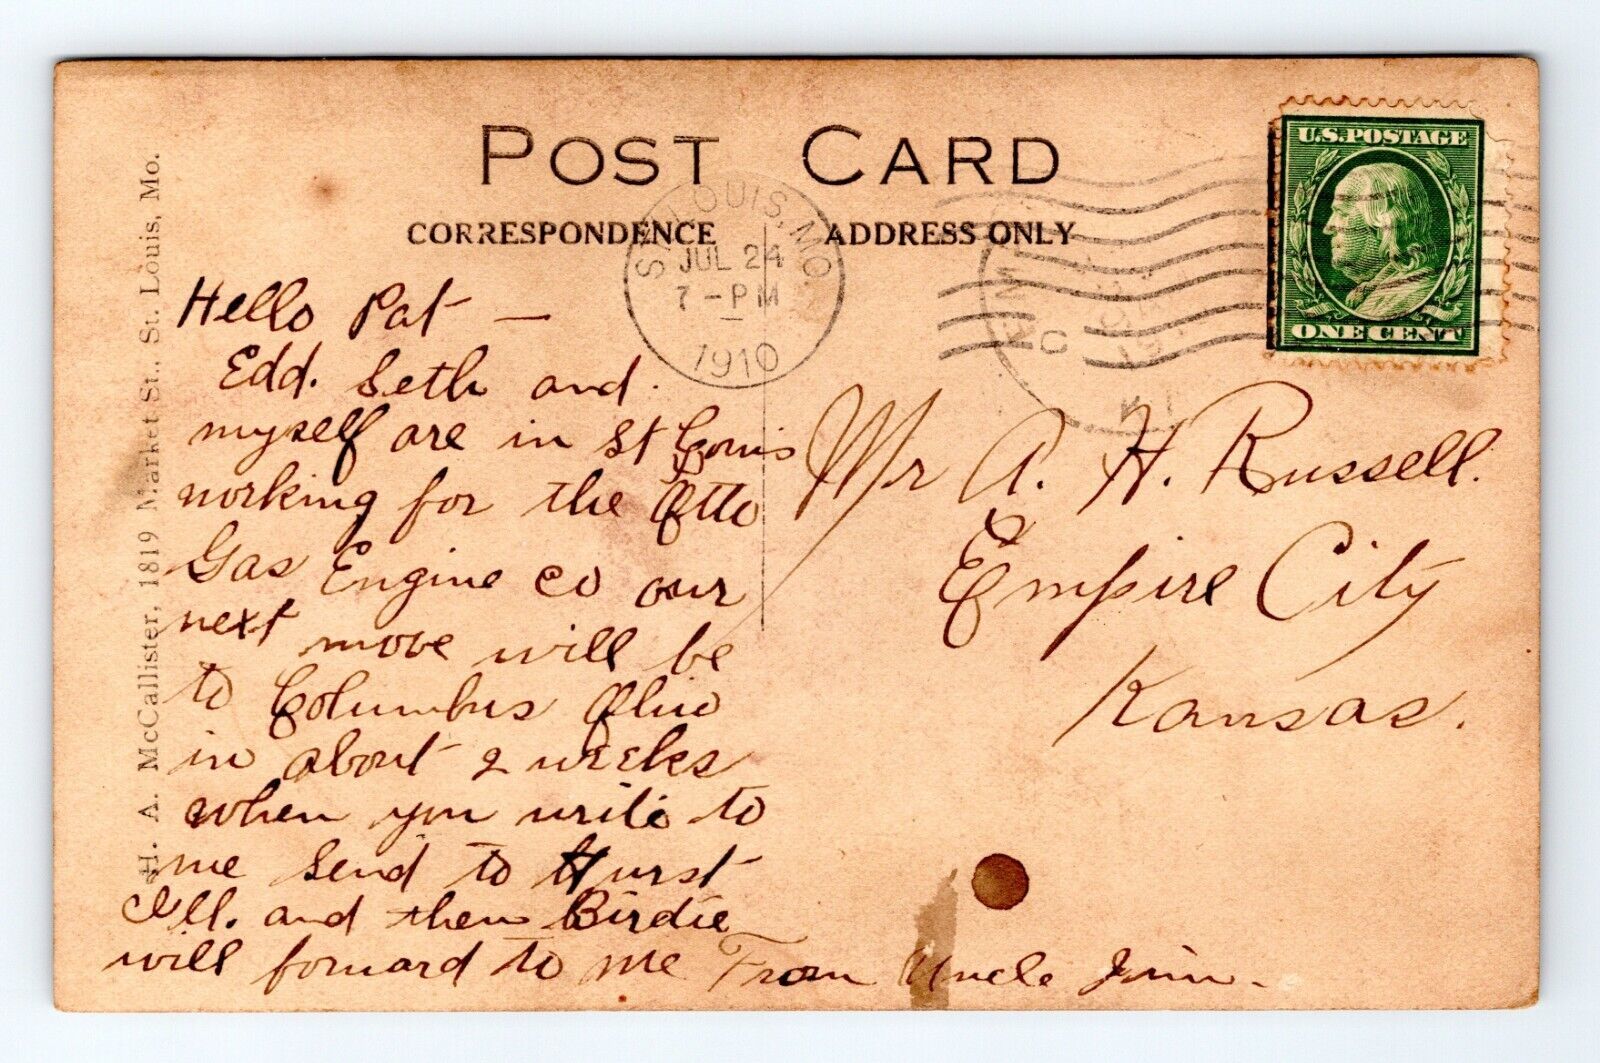 POST CARD
CORRESPONDENCE
ADDRESS ONLY
ST. LOUIS, MO.
JUL 24
7-PM
1910
U.S. POSTAGE
ONE CENT
H. A. McCallister, 1819 Market St., St. Louis, Mo.
Hello Pat —
Edd. Seth and
myself are in St Louis
working for the Otto
Gas Engine co our
next move will be
to Columbus Ohio
in about 2 weeks
when you write to
me send to Hurst
Ill. and then Birdie
will forward to me From Uncle Jim.
Mr A. H. Russell.
Empire City
Kansas.